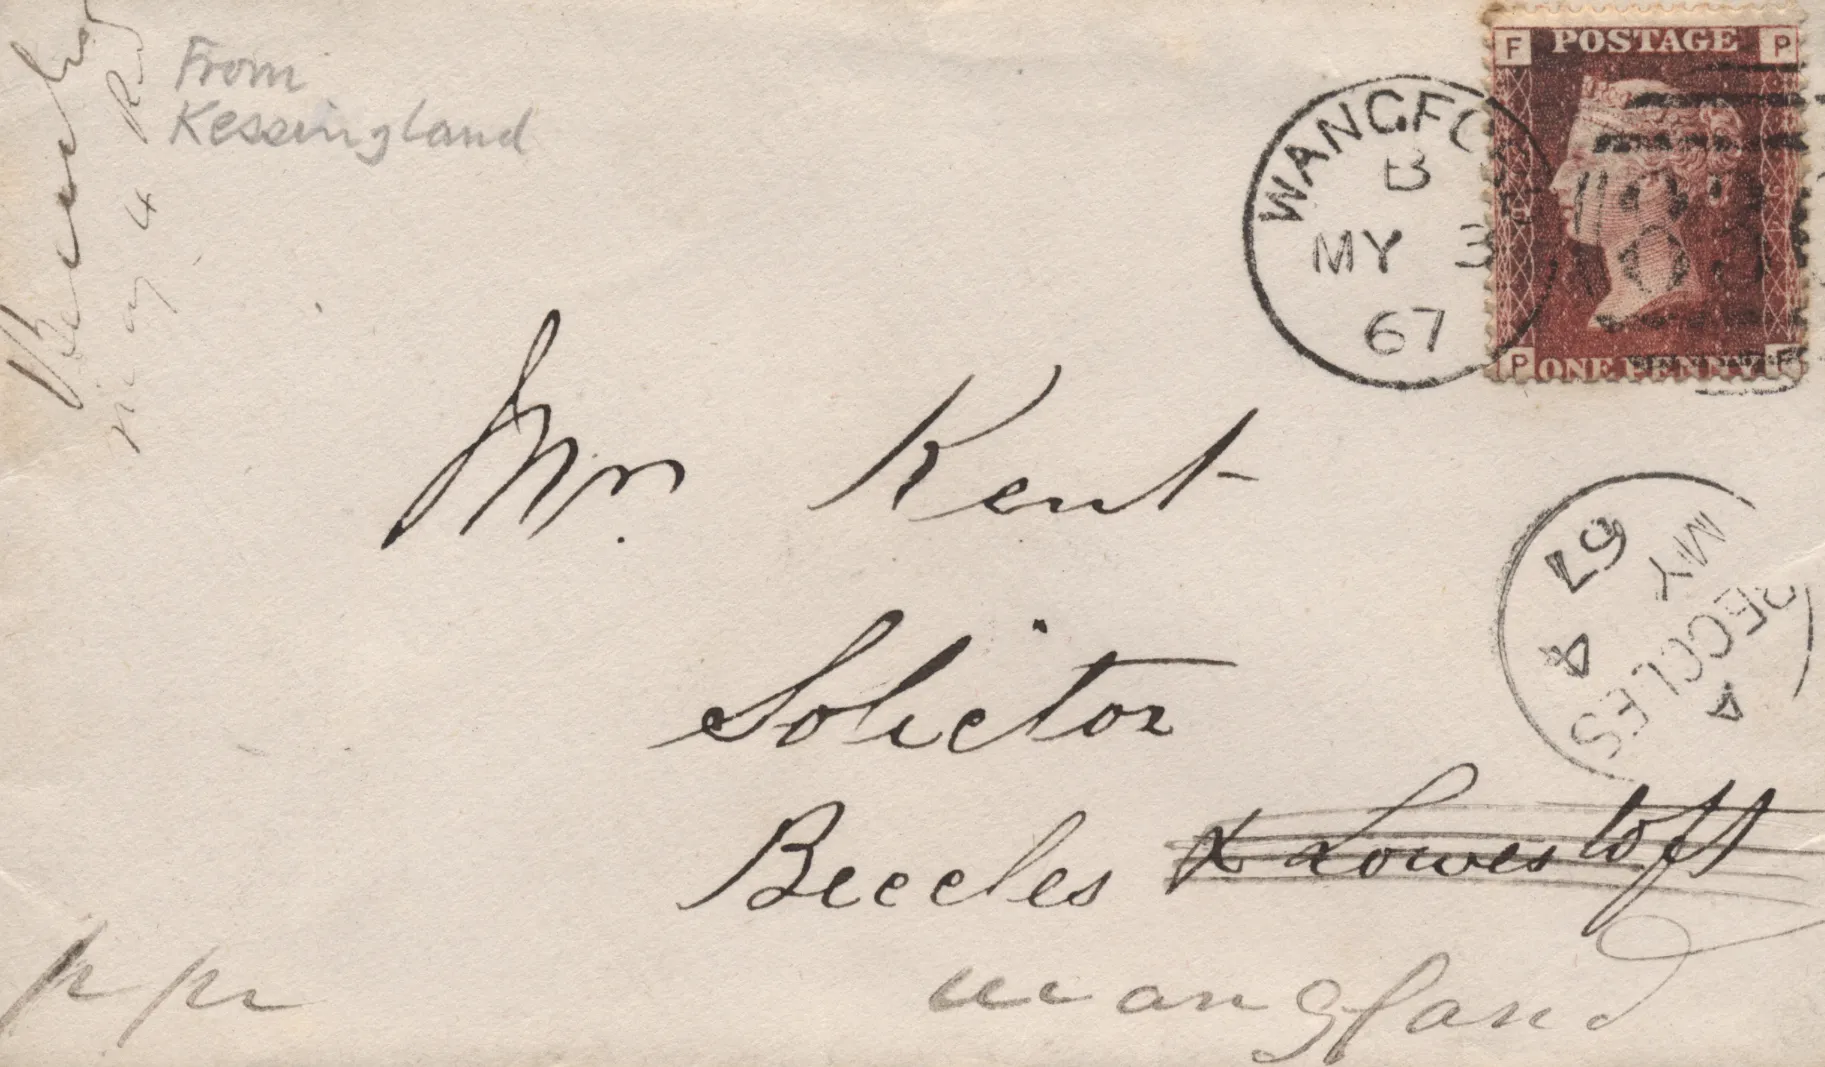 From
Kessingland
May 4
WANGFO
B
MY 3
67
F POSTAGE P
P ONE PENNY F
Mr. Kent
Solicitor
Beccles & Lowestoft
BECCLES
A
MY 4
67